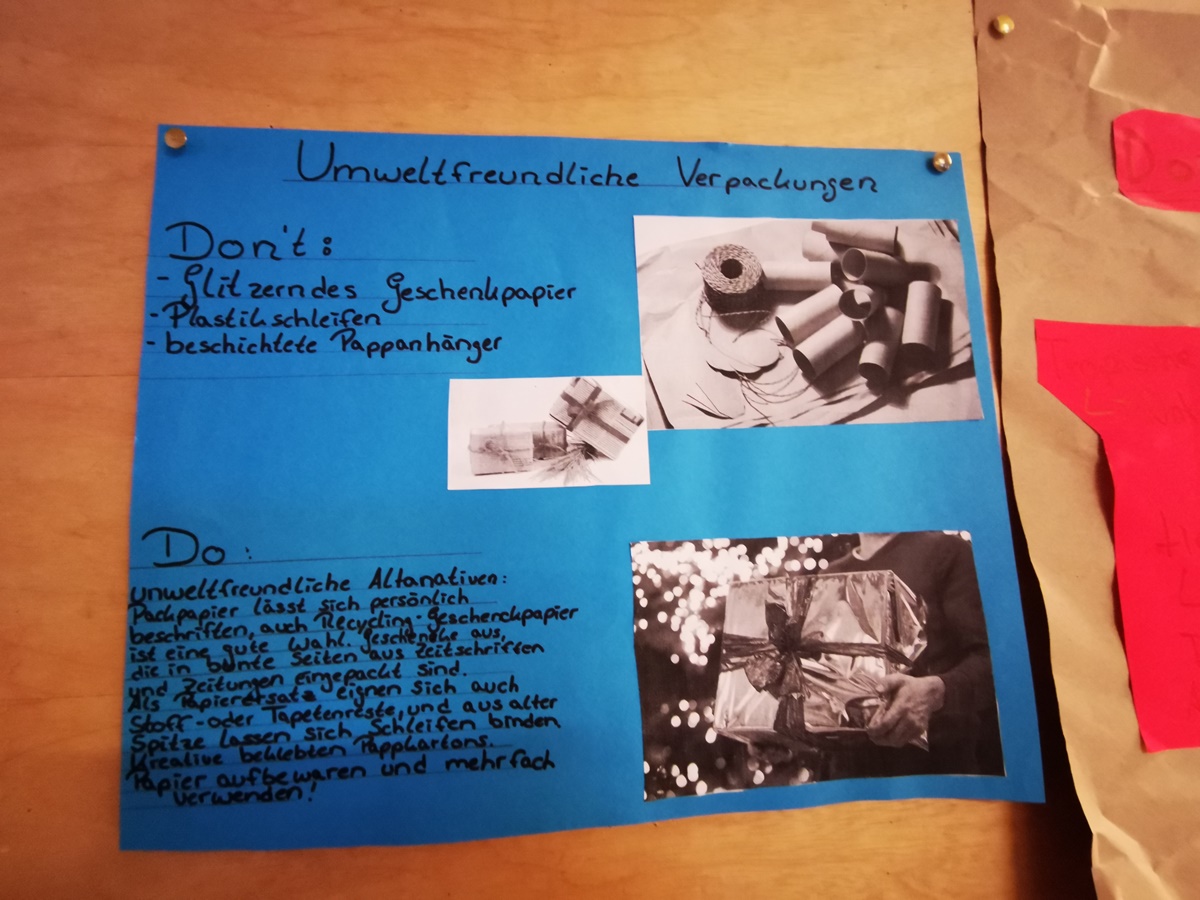 Umweltfreundliche Verpackungen
Don't:
- Glitzerndes Geschenkpapier
- Plastikschleifen
- beschichtete Pappanhänger
Do:
umweltfreundliche Altanativen:
Packpapier lässt sich persönlich
beschriften, auch Recycling-Geschenkpapier
ist eine gute Wahl. Geschenke aus,
die in bunte Seiten aus Zeitschriften
und Zeitungen eingepackt sind.
Als Papierersatz eignen sich auch
Stoff- oder Tapetenreste, und aus alter
Spitze lassen sich Schleifen binden
Kreative beklebten Pappkartons.
Papier aufbewaren und mehrfach
verwenden!
Do